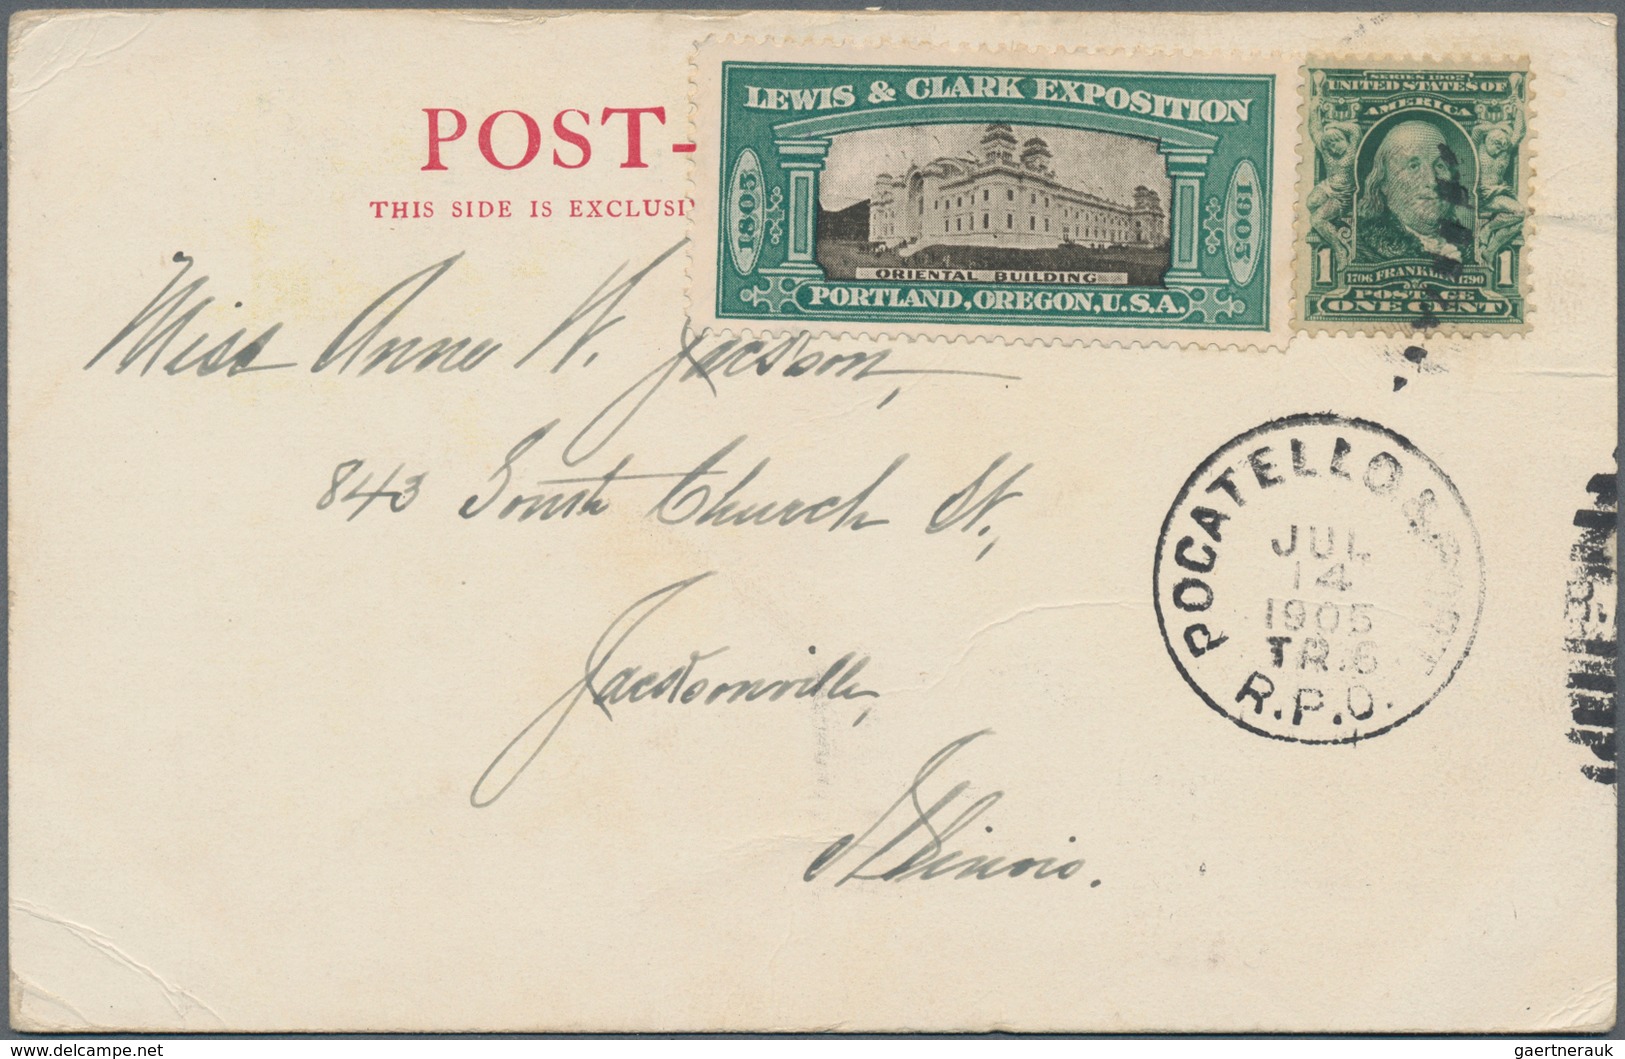 POST-
THIS SIDE IS EXCLUSI
LEWIS & CLARK EXPOSITION
1805
1905
ORIENTAL BUILDING
PORTLAND, OREGON, U.S.A.
SERIES 1902
UNITED STATES OF
AMERICA
1 1
1706 FRANKLIN 1790
POSTAGE
ONE CENT
Miss Anne W. Jackson,
843 South Church St.,
Jacksonville,
Illinois.
POCATELLO &
JUL
14
1905
TR.6
R.P.O.
www.delcampe.net
gaertnerauk